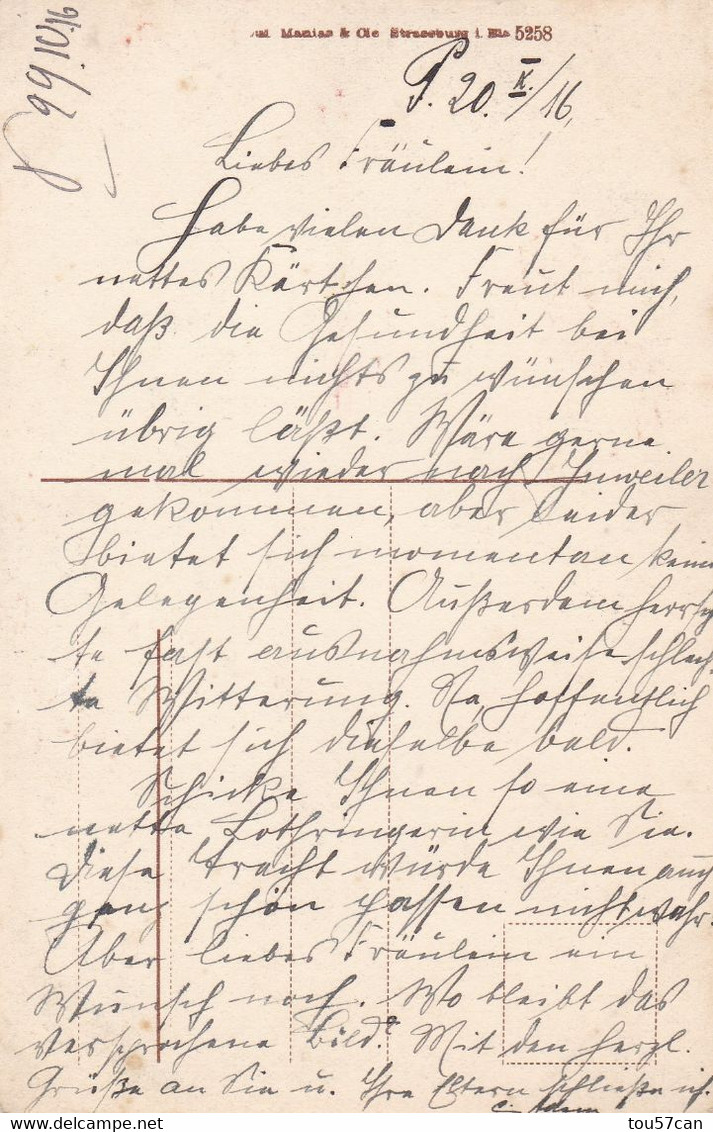 Manias & Cie Strassburg i. Els 5258
P. 20. X./16.
Liebes Fräulein!
Habe vielen Dank für Ihr
nettes Kärtchen. Freut mich,
daß die Gesundheit bei
Ihnen nichts zu wünschen
übrig läßt. Wäre gerne
mal wieder nach Inweiler
gekommen, aber leider
bietet sich momentan keine
Gelegenheit. Außerdem herrsch
te fast ausnahmsweise schlech
te Witterung. Na, hoffentlich
bietet sich dieselbe bald.
Schicke Ihnen so eine
nette Lothringerin wie Sie.
Diese Tracht würde Ihnen auch
ganz schön passen nicht wahr.
Aber liebes Fräulein ein
Wunsch noch. Wo bleibt das
versprochene Bild? Mit den herzl.
Grüße an Sie u. Ihre Eltern schließe ich.
tou57can